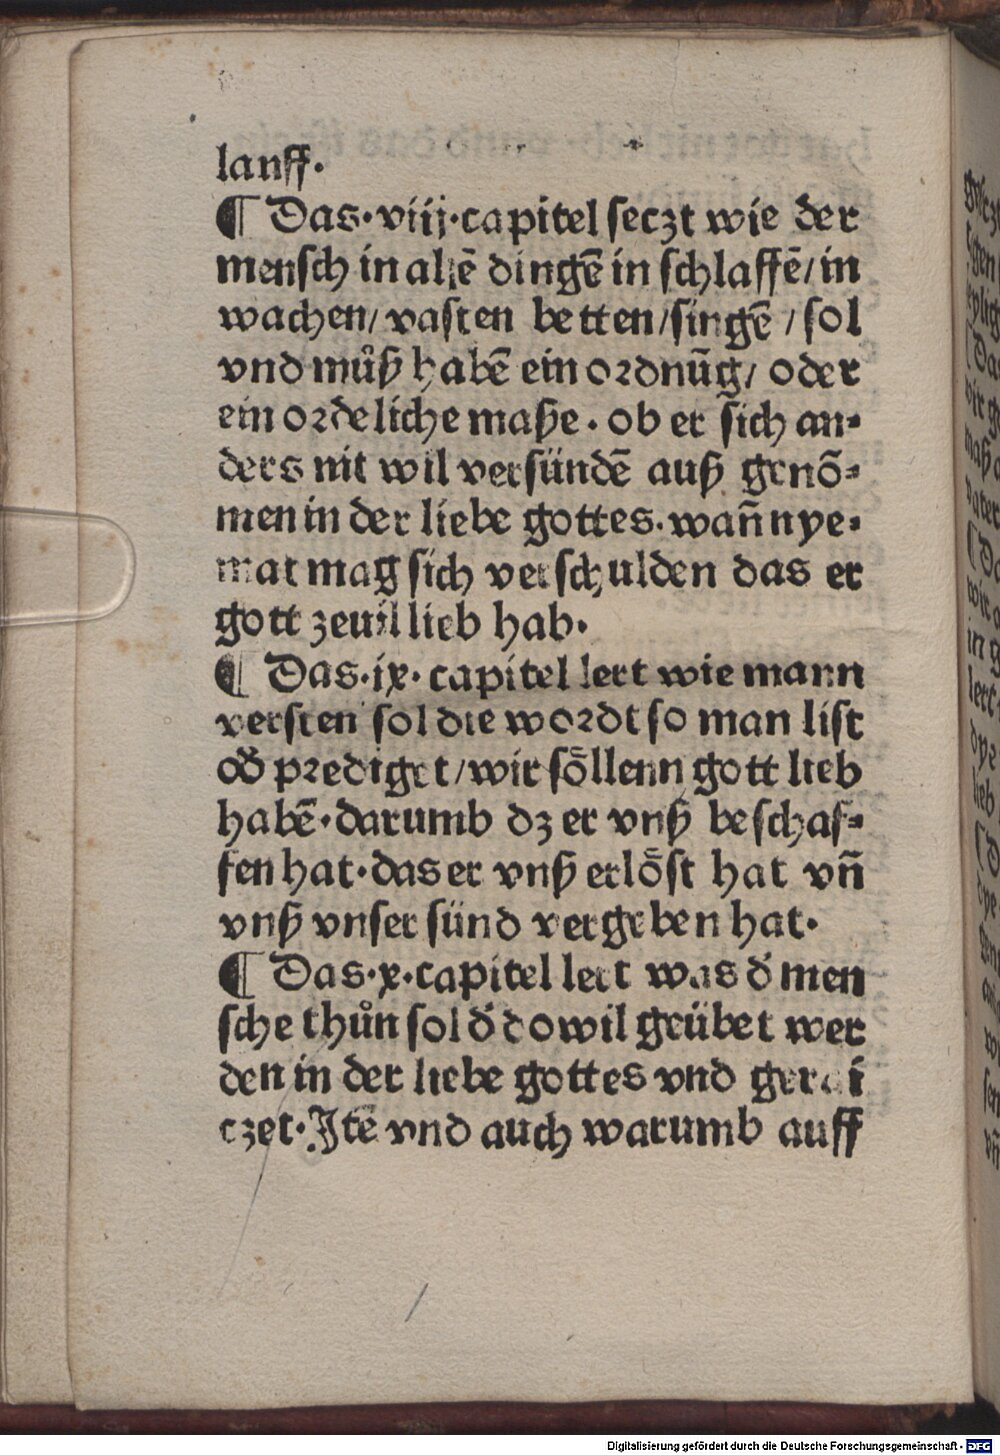 lauff.
¶ Das·viij·capitel seczt wie der
mensch in allē dingē in schlaffē/ in
wachen/ vasten betten/singē / sol
vnd můß habē ein ordnūg/ oder
ein ordeliche maße · ob er sich an-
ders nit wil versündē auß genō-
men in der liebe gottes. wañ nye-
mat mag sich verschulden das er
gott zeuil lieb hab.
¶ Das·ix·capitel lert wie mann
versten sol die wordt so man list
od̄ prediget/wir söllenn gott lieb
habē· darumb dz er vnß beschaf-
fen hat· das er vnß erlöst hat vñ
vnß vnser sünd vergeben hat.
¶ Das·x·capitel lert was d̄ men
sche thůn sol d̄ do wil geübet wer
den in der liebe gottes vnd gerai
czet· Itē vnd auch warumb auff
Digitalisierung gefördert durch die Deutsche Forschungsgemeinschaft - DFG